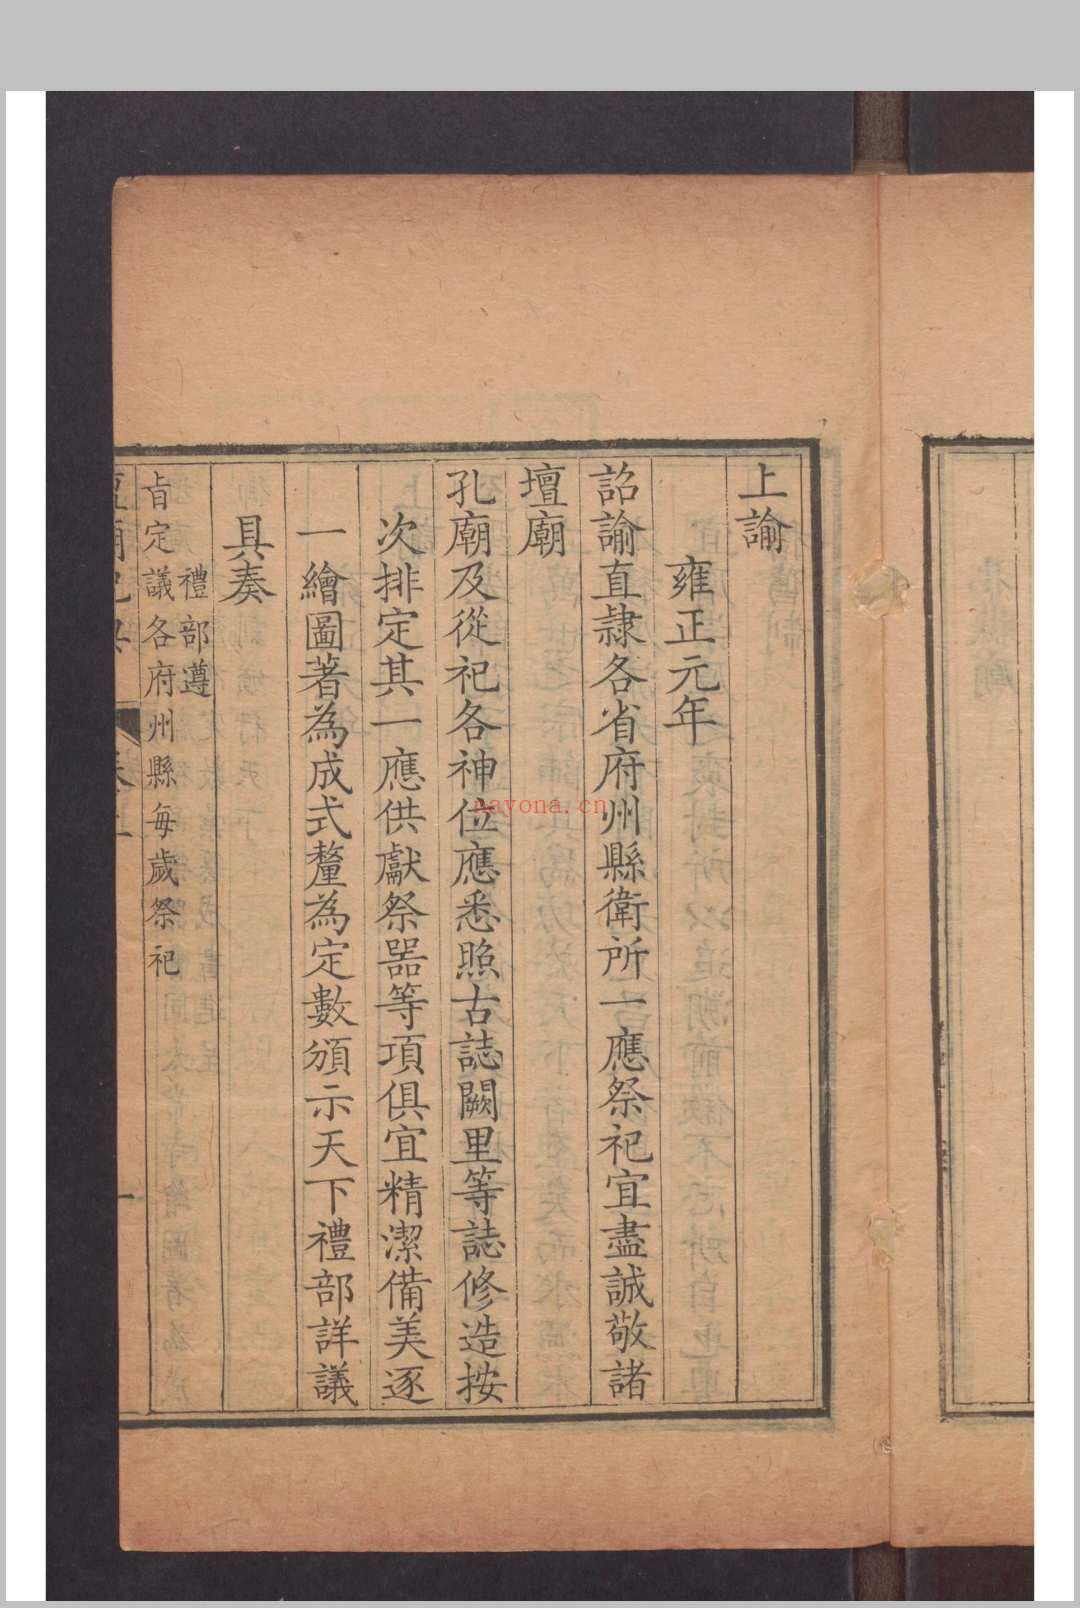 上諭
雍正元年
詔諭直隷各省府州縣衛所一應祭祀宜盡誠敬諸
壇廟
孔廟及從祀各神位應悉照古誌闕里等誌修造按
次排定其一應供獻祭器等項俱宜精潔備美逐
一繪圖著為成式釐為定數頒示天下禮部詳議
具奏
禮部遵
旨定議各府州縣每歲祭祀
壇廟祀典
nayona.cn